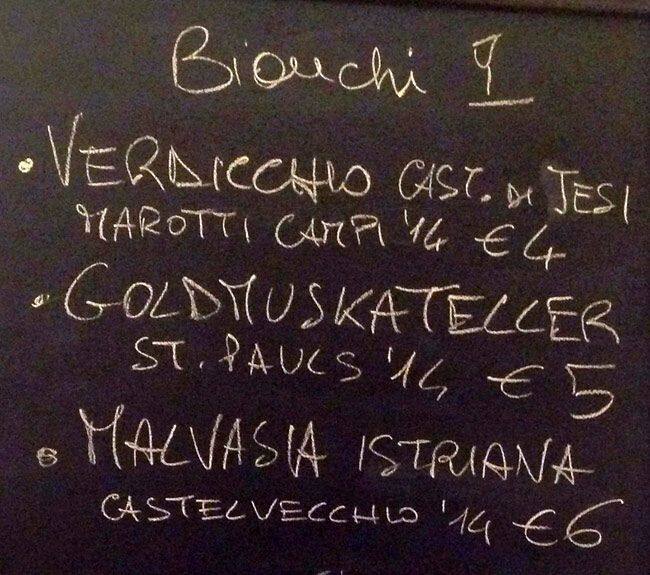 Bianchi
• VERDICCHIO CAST. DI JESI
MAROTTI CAMPI '14 €4
• GOLDMUSKATELLER
ST. PAULS '14 €5
• MALVASIA ISTRIANA
CASTELVECCHIO '14 €6